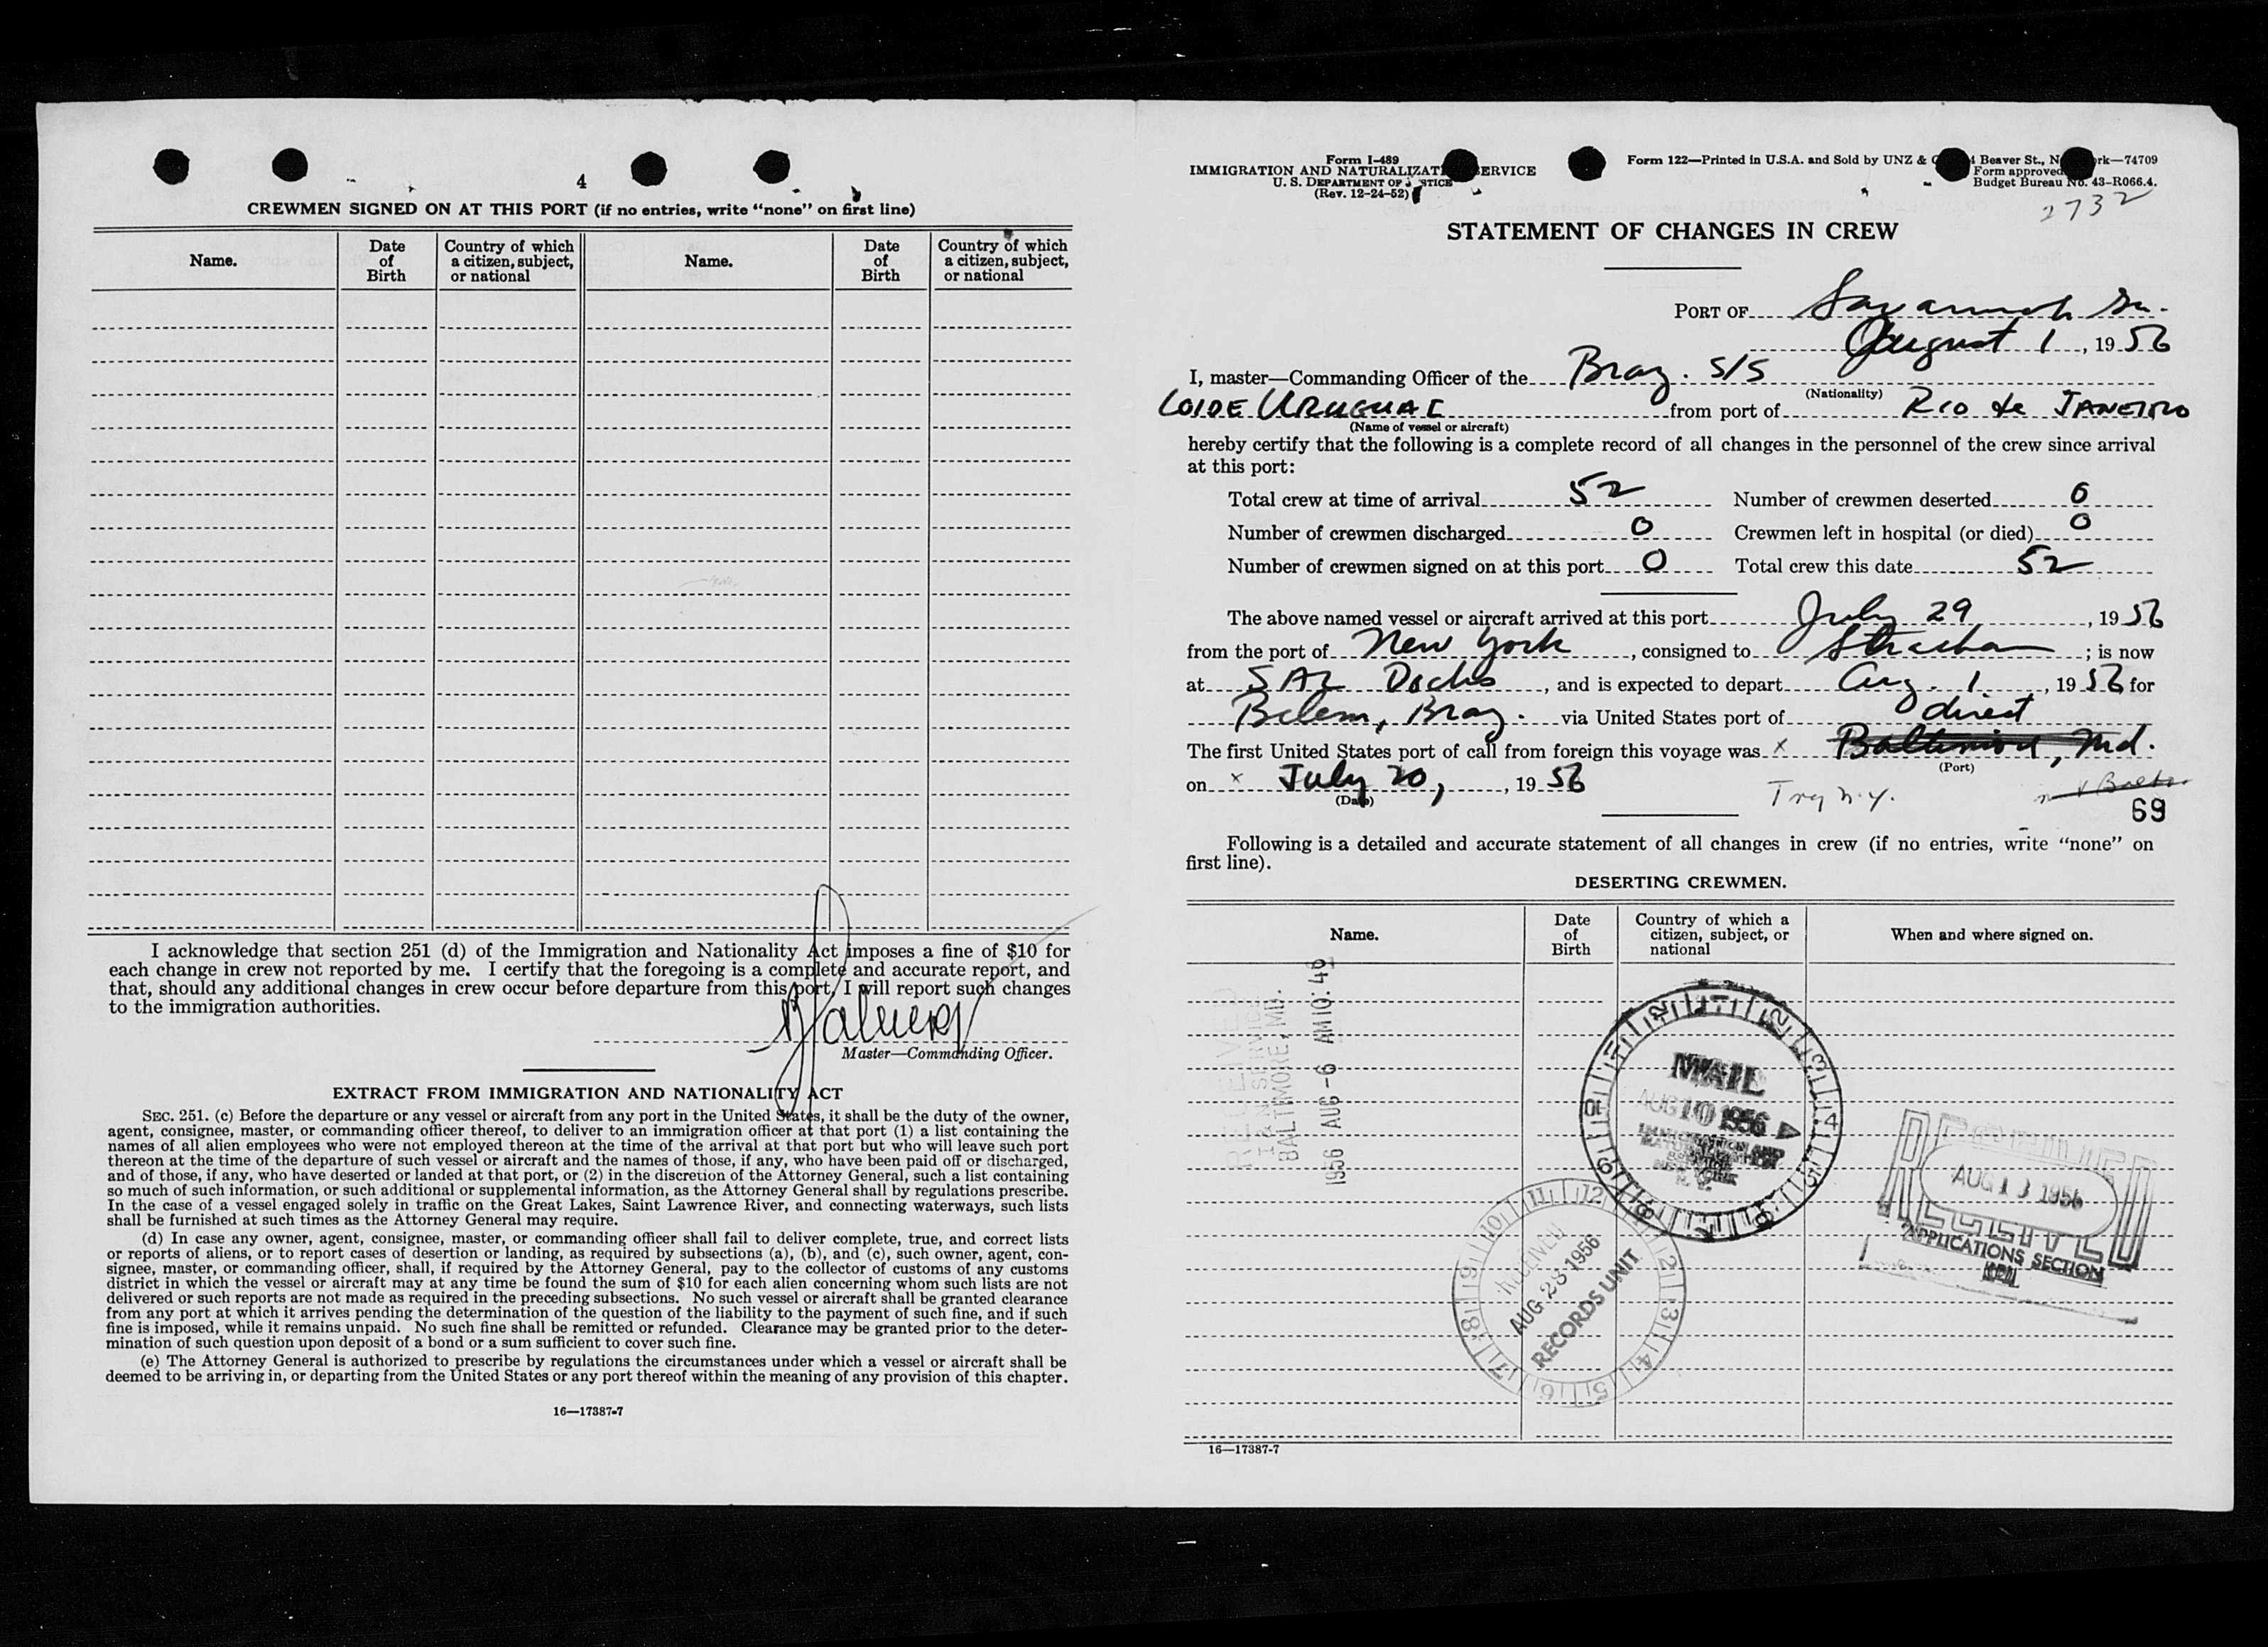 4
CREWMEN SIGNED ON AT THIS PORT (if no entries, write “none” on first line)
Name.
Date of Birth
Country of which a citizen, subject, or national
Name.
Date of Birth
Country of which a citizen, subject, or national
I acknowledge that section 251 (d) of the Immigration and Nationality Act imposes a fine of $10 for
each change in crew not reported by me. I certify that the foregoing is a complete and accurate report, and
that, should any additional changes in crew occur before departure from this port, I will report such changes
to the immigration authorities.
Master—Commanding Officer.
EXTRACT FROM IMMIGRATION AND NATIONALITY ACT
SEC. 251. (c) Before the departure or any vessel or aircraft from any port in the United States, it shall be the duty of the owner,
agent, consignee, master, or commanding officer thereof, to deliver to an immigration officer at that port (1) a list containing the
names of all alien employees who were not employed thereon at the time of the arrival at that port but who will leave such port
thereon at the time of the departure of such vessel or aircraft and the names of those, if any, who have been paid off or discharged,
and of those, if any, who have deserted or landed at that port, or (2) in the discretion of the Attorney General, such a list containing
so much of such information, or such additional or supplemental information, as the Attorney General shall by regulations prescribe.
In the case of a vessel engaged solely in traffic on the Great Lakes, Saint Lawrence River, and connecting waterways, such lists
shall be furnished at such times as the Attorney General may require.
(d) In case any owner, agent, consignee, master, or commanding officer shall fail to deliver complete, true, and correct lists
or reports of aliens, or to report cases of desertion or landing, as required by subsections (a), (b), and (c), such owner, agent, con-
signee, master, or commanding officer, shall, if required by the Attorney General, pay to the collector of customs of any customs
district in which the vessel or aircraft may at any time be found the sum of $10 for each alien concerning whom such lists are not
delivered or such reports are not made as required in the preceding subsections. No such vessel or aircraft shall be granted clearance
from any port at which it arrives pending the determination of the question of the liability to the payment of such fine, and if such
fine is imposed, while it remains unpaid. No such fine shall be remitted or refunded. Clearance may be granted prior to the deter-
mination of such question upon deposit of a bond or a sum sufficient to cover such fine.
(e) The Attorney General is authorized to prescribe by regulations the circumstances under which a vessel or aircraft shall be
deemed to be arriving in, or departing from the United States or any port thereof within the meaning of any provision of this chapter.
16—17387-7
Form I-489
IMMIGRATION AND NATURALIZAT ERVICE
U. S. DEPARTMENT OF J STICE
(Rev. 12-24-52)
Form 122—Printed in U.S.A. and Sold by UNZ & C 4 Beaver St., N rk—74709
Form approved
Budget Bureau No. 43-R066.4.
2732
STATEMENT OF CHANGES IN CREW
PORT OF Savannah Ga.
August 1, 1956
I, master—Commanding Officer of the Braz. S/S
(Nationality)
LOIDE URUGUAI from port of RIO de JANEIRO
(Name of vessel or aircraft)
hereby certify that the following is a complete record of all changes in the personnel of the crew since arrival
at this port:
Total crew at time of arrival 52 Number of crewmen deserted 0
Number of crewmen discharged 0 Crewmen left in hospital (or died) 0
Number of crewmen signed on at this port 0 Total crew this date 52
The above named vessel or aircraft arrived at this port July 29, 1956
from the port of New York, consigned to Strachan; is now
at SAL Docks, and is expected to depart Aug. 1, 1956 for
Belem, Braz. via United States port of direct
The first United States port of call from foreign this voyage was x Baltimore, Md.
(Port)
on x July 20, 1956
(Date)
Try N.Y.
Balto.
69
Following is a detailed and accurate statement of all changes in crew (if no entries, write “none” on
first line).
DESERTING CREWMEN.
Name.
Date of Birth
Country of which a citizen, subject, or national
When and where signed on.
RECEIVED
I & N SERVICE
BALTIMORE, MD.
1956 AUG -6 AM 10:46
MAIL
AUG 10 1956
IMMIGRATION AND
N. Y.
RECEIVED
AUG 13 1956
APPLICATIONS SECTION
RECEIVED
AUG 28 1956
RECORDS UNIT
16—17387-7